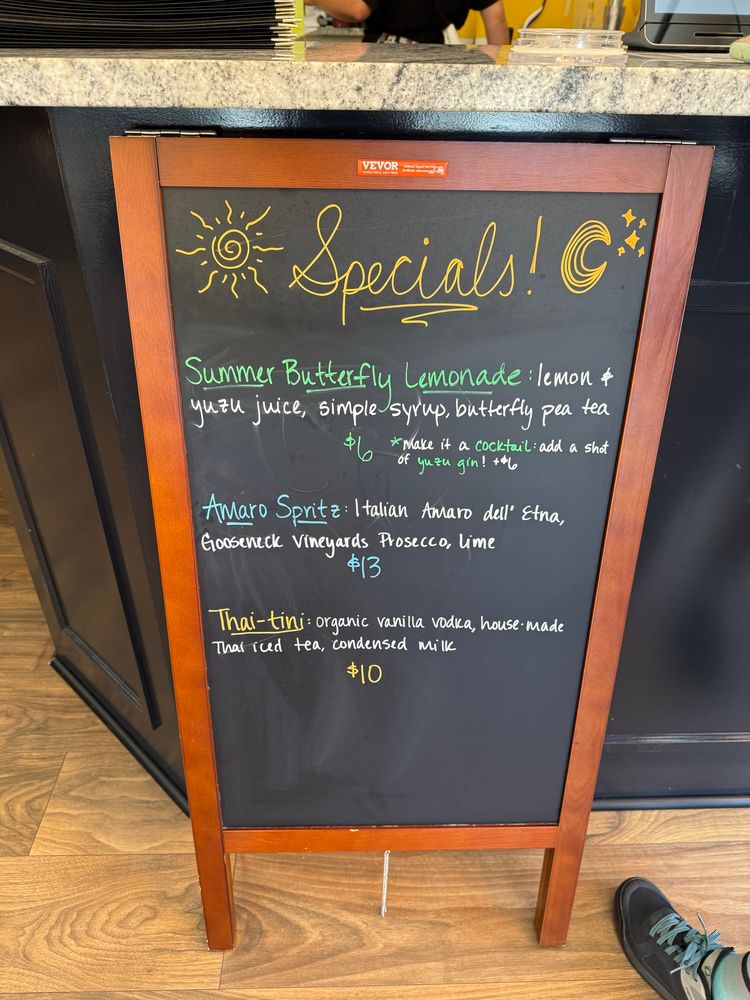 VEVOR
Specials!
Summer Butterfly Lemonade: lemon &
yuzu juice, simple syrup, butterfly pea tea
$6 *make it a cocktail: add a shot
of yuzu gin! +$6
Amaro Spritz: Italian Amaro dell' Etna,
Gooseneck Vineyards Prosecco, lime
$13
Thai-tini: organic vanilla vodka, house-made
Thai iced tea, condensed milk
$10